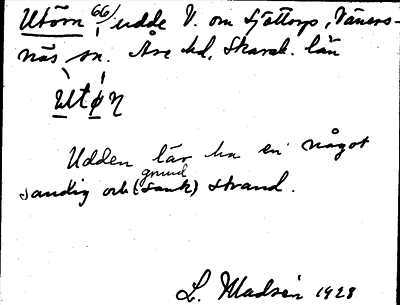 Utörn 66/ udde V. om Sjöttorp, Väners-
näs sn. Åse hd, Skarab. län
utøn
Udden lär ha en något
grund
sandig och (sank) strand.
L. Madsén 1928